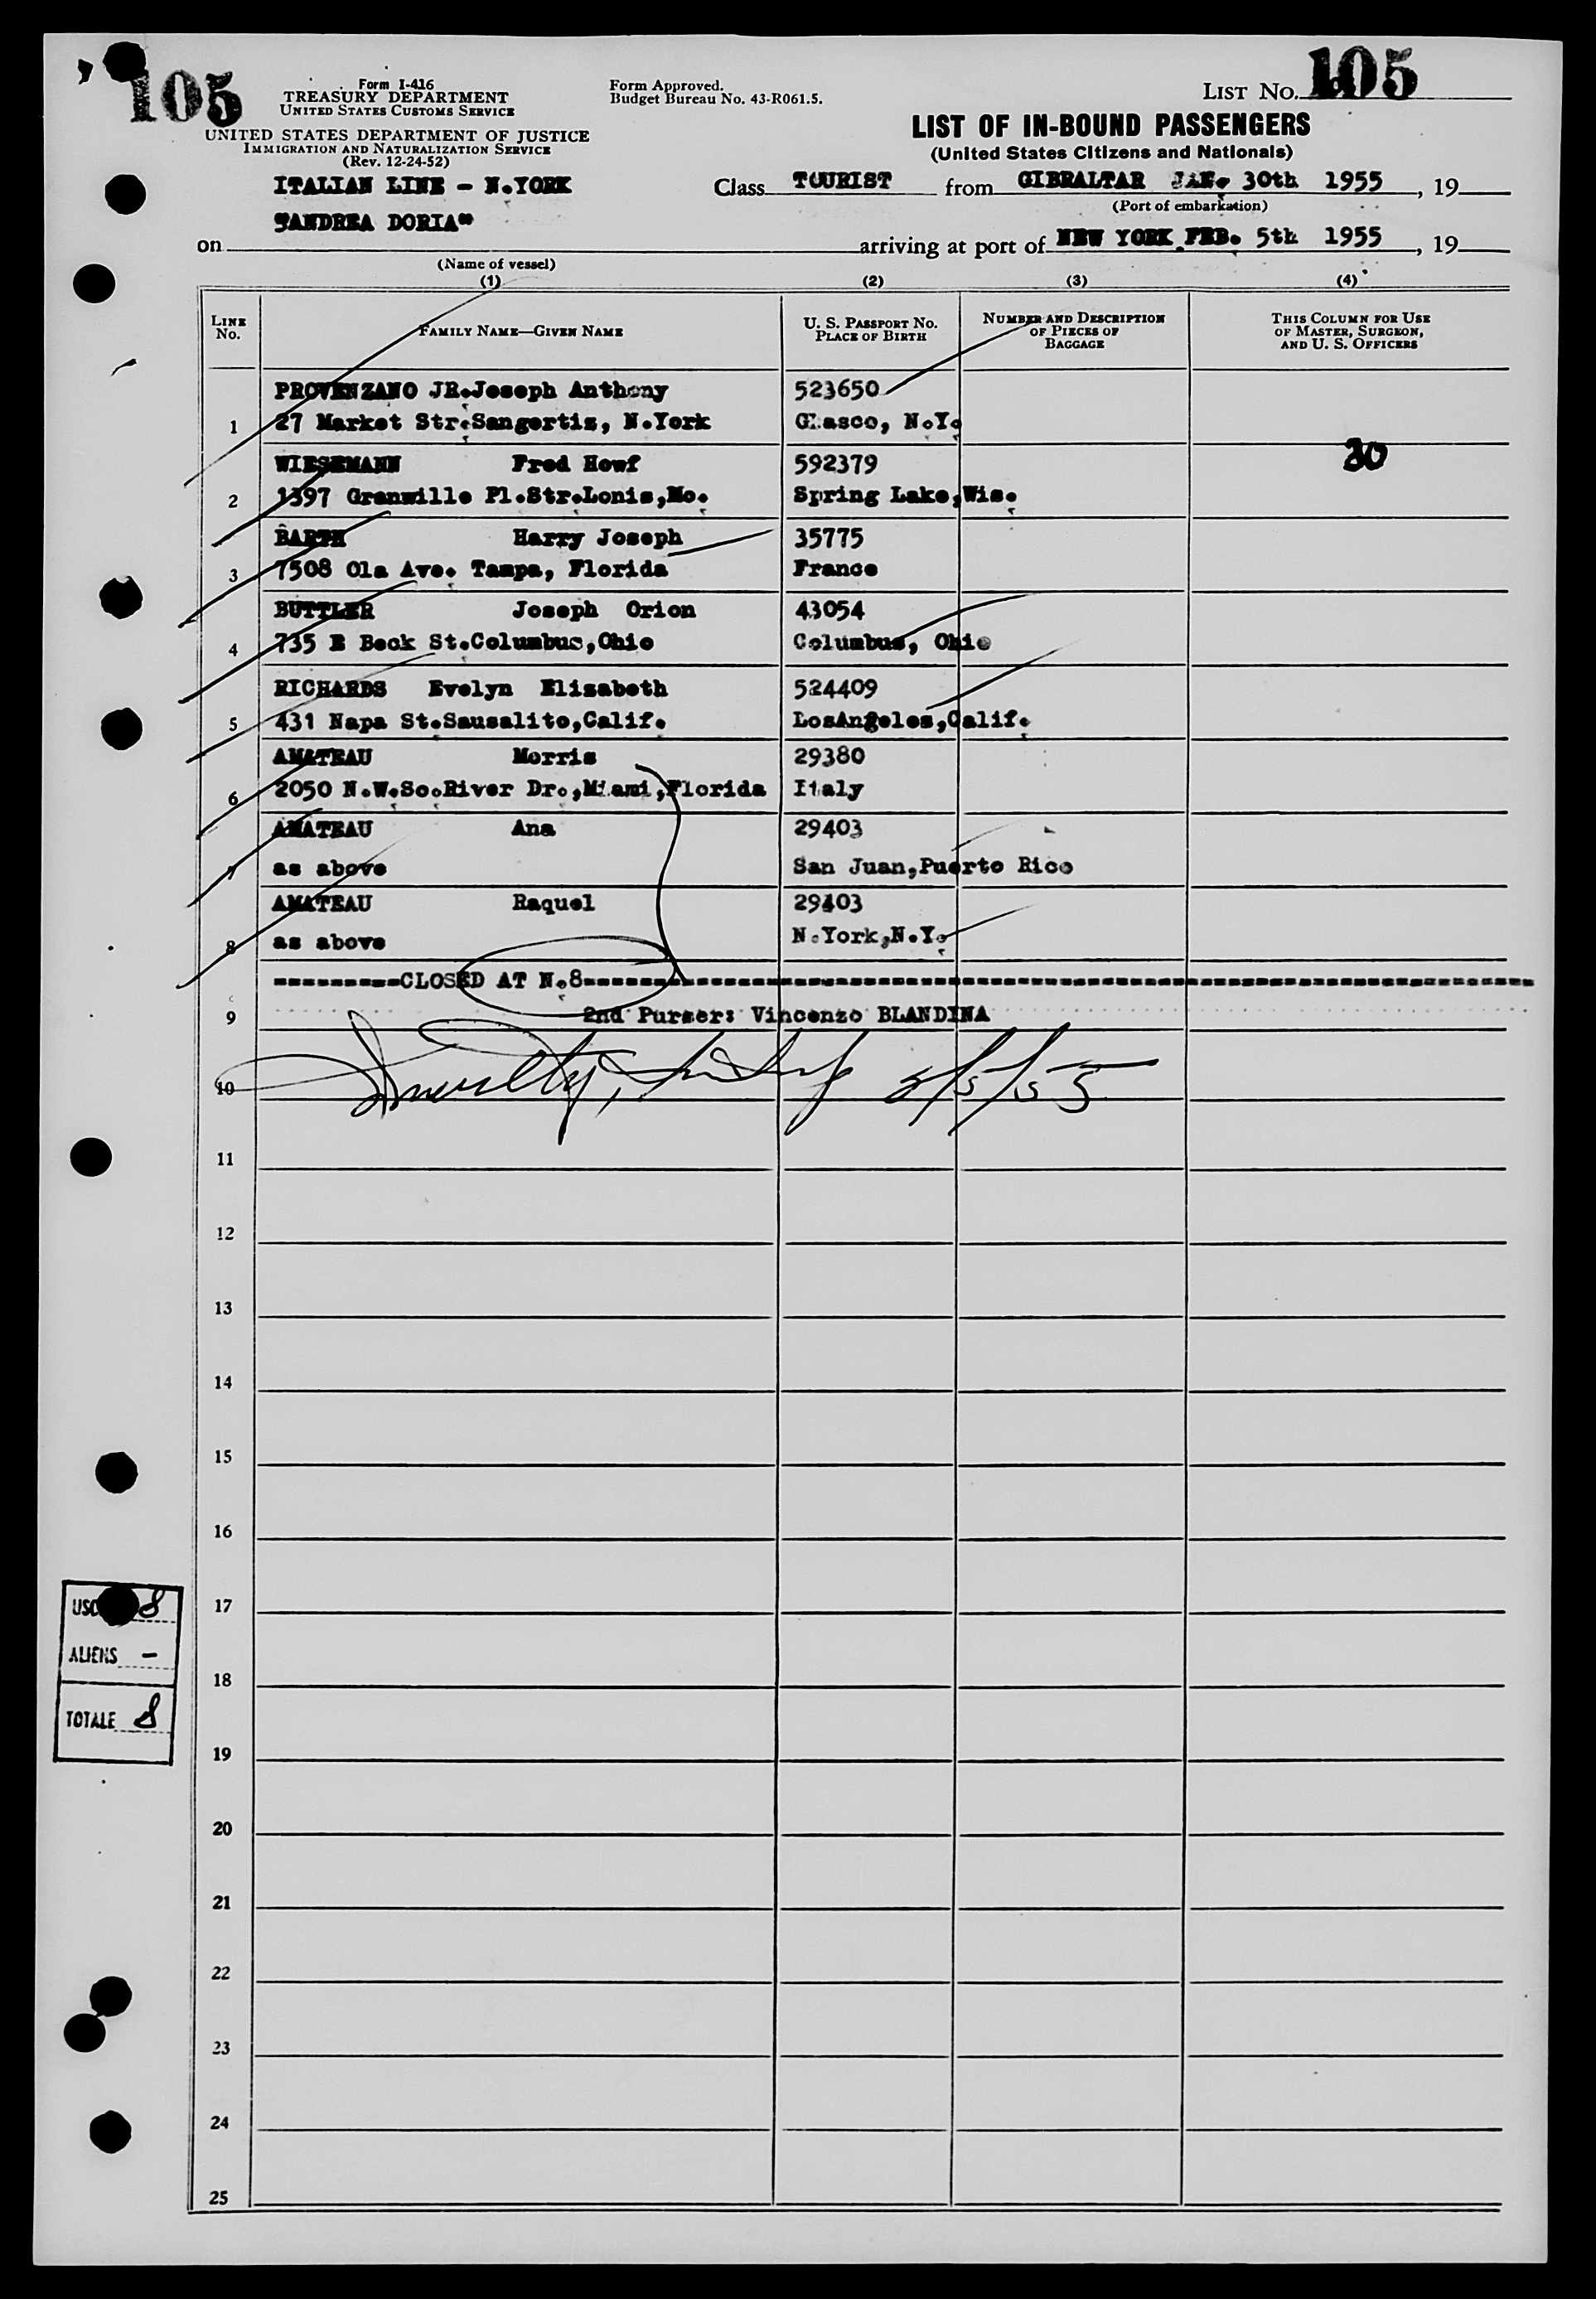 105
Form I-416
TREASURY DEPARTMENT
UNITED STATES CUSTOMS SERVICE
UNITED STATES DEPARTMENT OF JUSTICE
IMMIGRATION AND NATURALIZATION SERVICE
(Rev. 12-24-52)
Form Approved.
Budget Bureau No. 43-R061.5.
LIST NO. 105
LIST OF IN-BOUND PASSENGERS
(United States Citizens and Nationals)
ITALIAN LINE - N.YORK
Class TOURIST from GIBRALTAR JAN. 30th 1955, 19
(Port of embarkation)
"ANDREA DORIA"
on arriving at port of NEW YORK FEB. 5th 1955, 19
(Name of vessel)
(1) (2) (3) (4)
LINE No. FAMILY NAME—GIVEN NAME U. S. PASSPORT NO. PLACE OF BIRTH NUMBER AND DESCRIPTION OF PIECES OF BAGGAGE THIS COLUMN FOR USE OF MASTER, SURGEON, AND U. S. OFFICERS
PROVENZANO JR.Joseph Anthony 523650
1 27 Market Str.Sangertis, N.York Glasco, N.Y.
WIESEMANN Fred Howf 592379 30
2 1397 Granwille Pl.Str.Lonis,Mo. Spring Lake,Wis.
BARTH Harry Joseph 35775
3 7508 Ola Ave. Tampa, Florida France
BUTTLER Joseph Orion 43054
4 735 E Beck St.Columbus,Ohio Columbus, Ohio
RICHARDS Evelyn Elisabeth 524409
5 431 Napa St.Sausalito,Calif. LosAngeles,Calif.
AMATEAU Morris 29380
6 2050 N.W.So.River Dr.,Miami,Florida Italy
AMATEAU Ana 29403
7 as above San Juan,Puerto Rico
AMATEAU Raquel 29403
8 as above N.York,N.Y.
----------CLOSED AT N.8----------
9 2nd Purser: Vincenzo BLANDINA
10 2/5/55
11
12
13
14
15
16
17
18
19
20
21
22
23
24
25
USC 8
ALIENS -
TOTALE 8